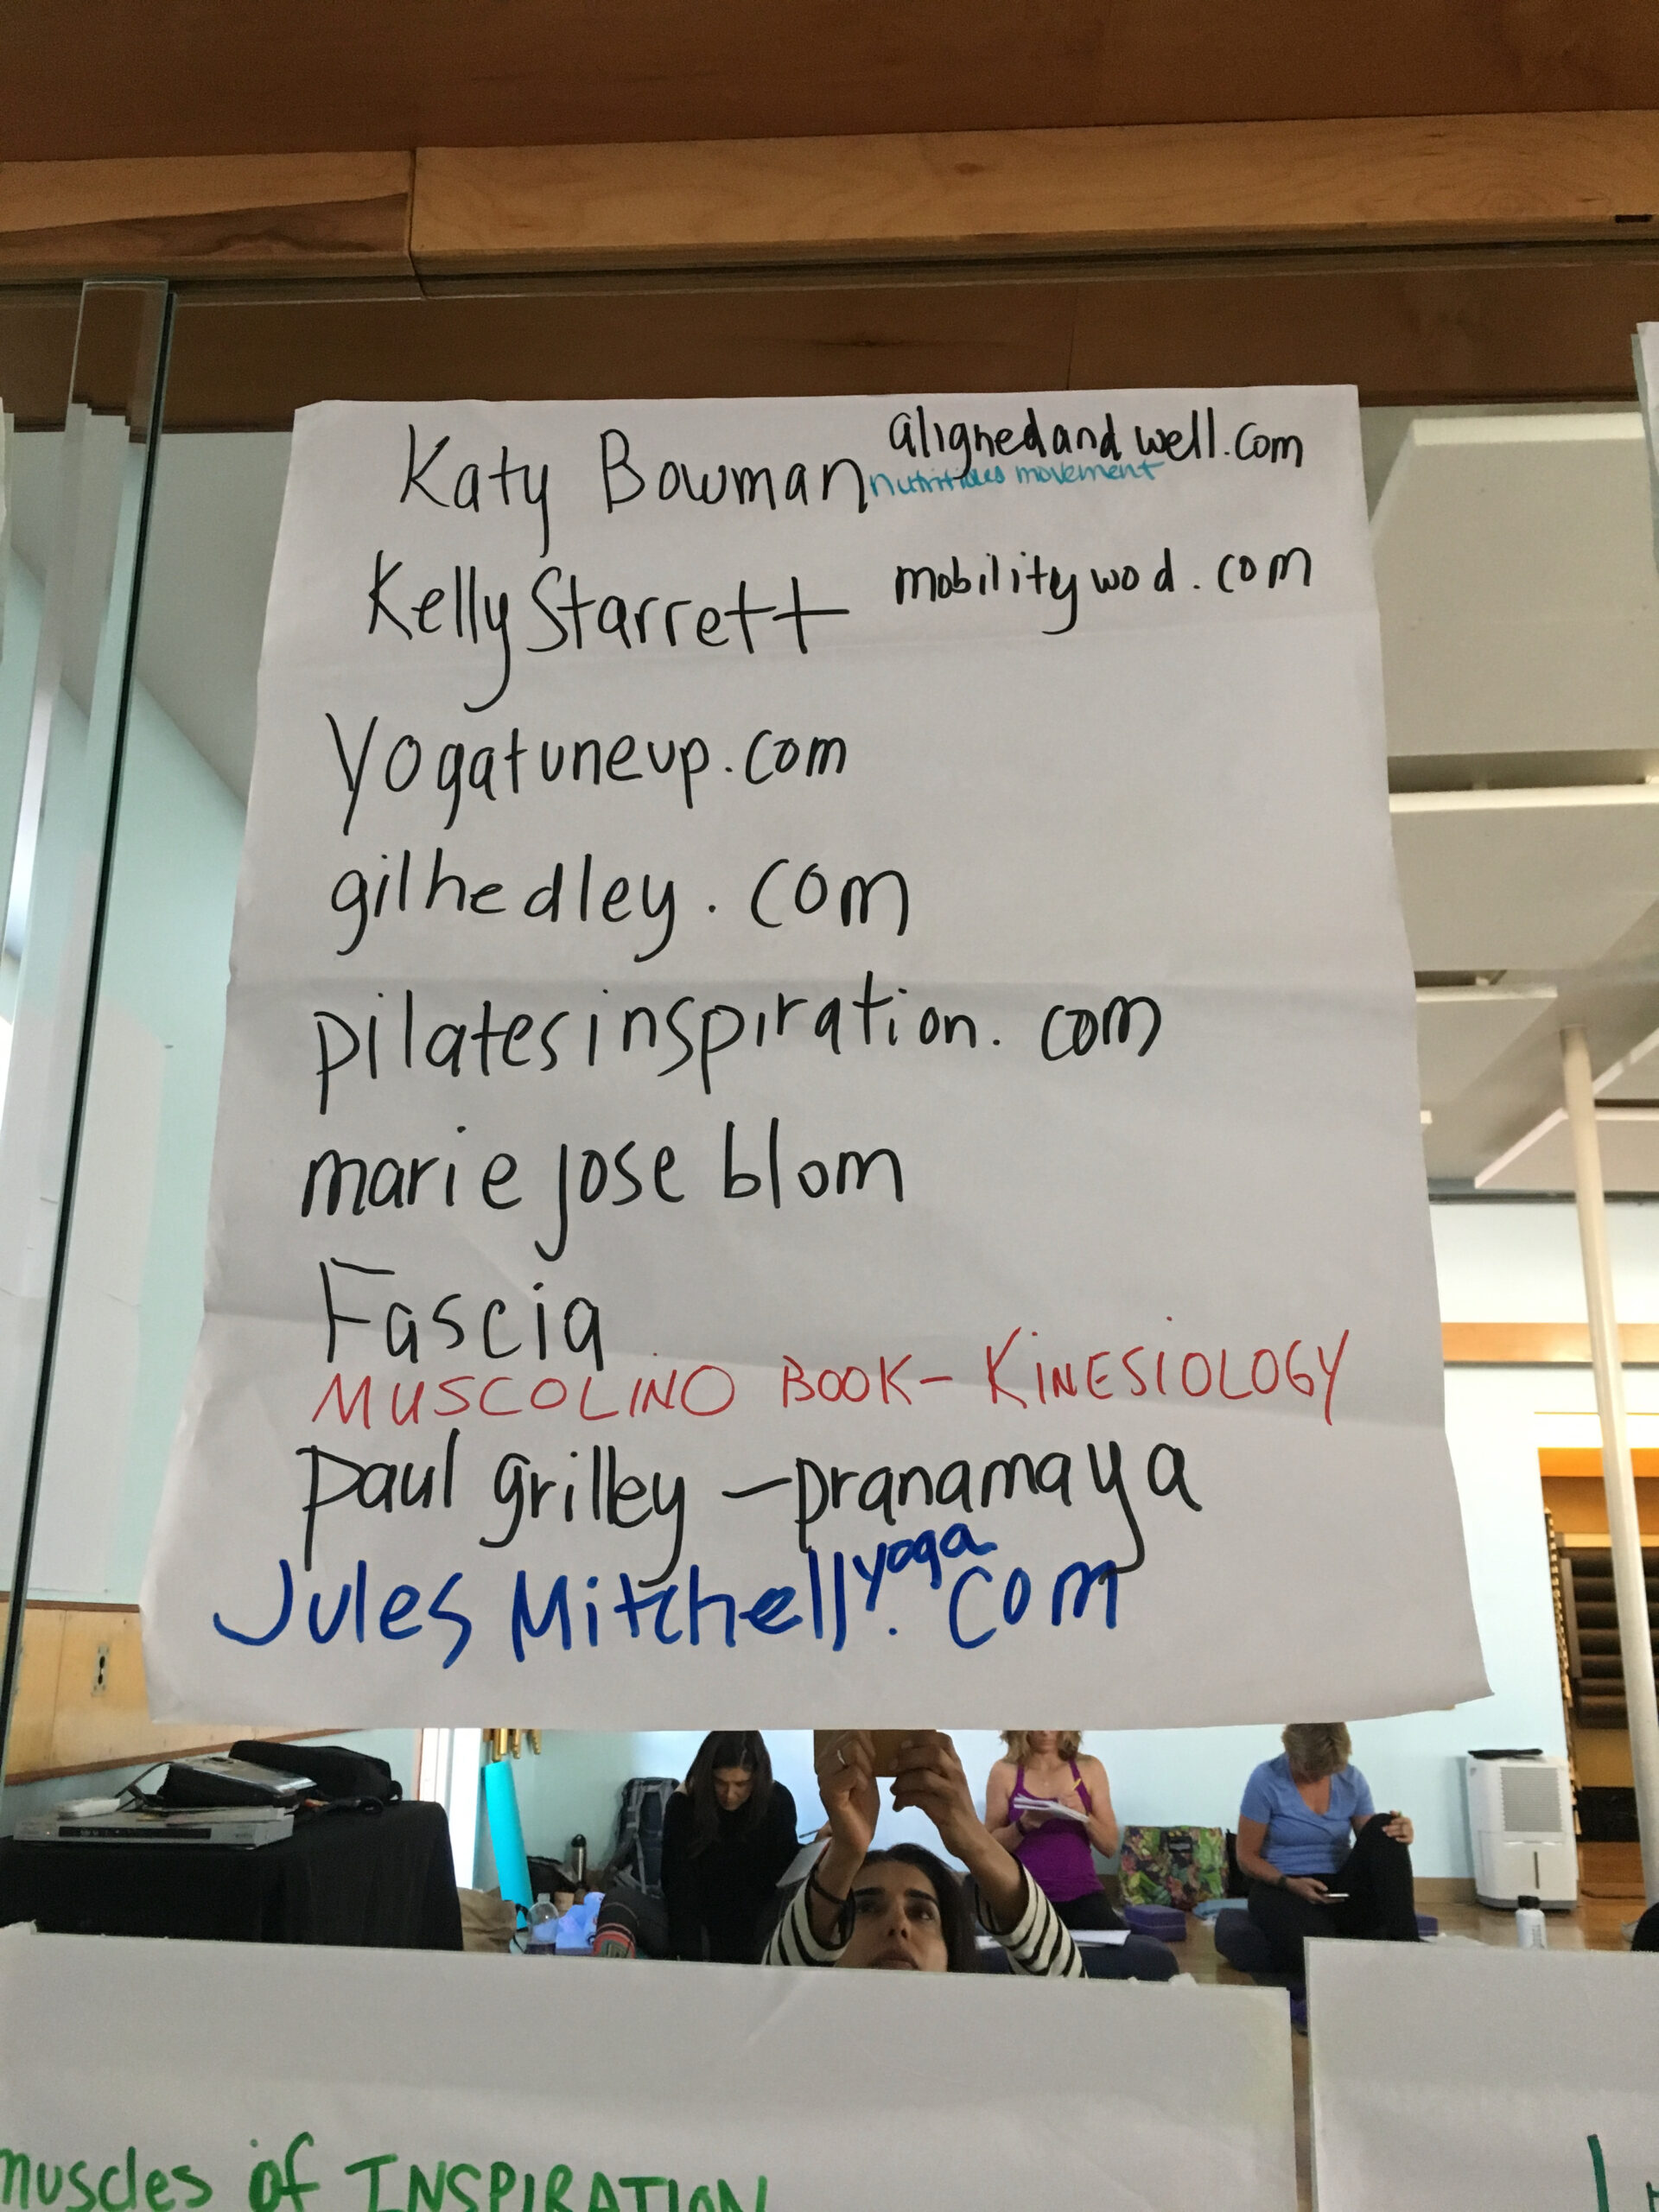 Katy Bowman alignedandwell.com
nutritious movement
Kelly Starrett mobilitywod.com
Yogatuneup.com
gilhedley.com
pilatesinspiration.com
marie jose blom
Fascia
MUSCOLINO BOOK - KINESIOLOGY
paul grilley - pranamaya
Jules Mitchellyoga.com
muscles of INSPIRATION